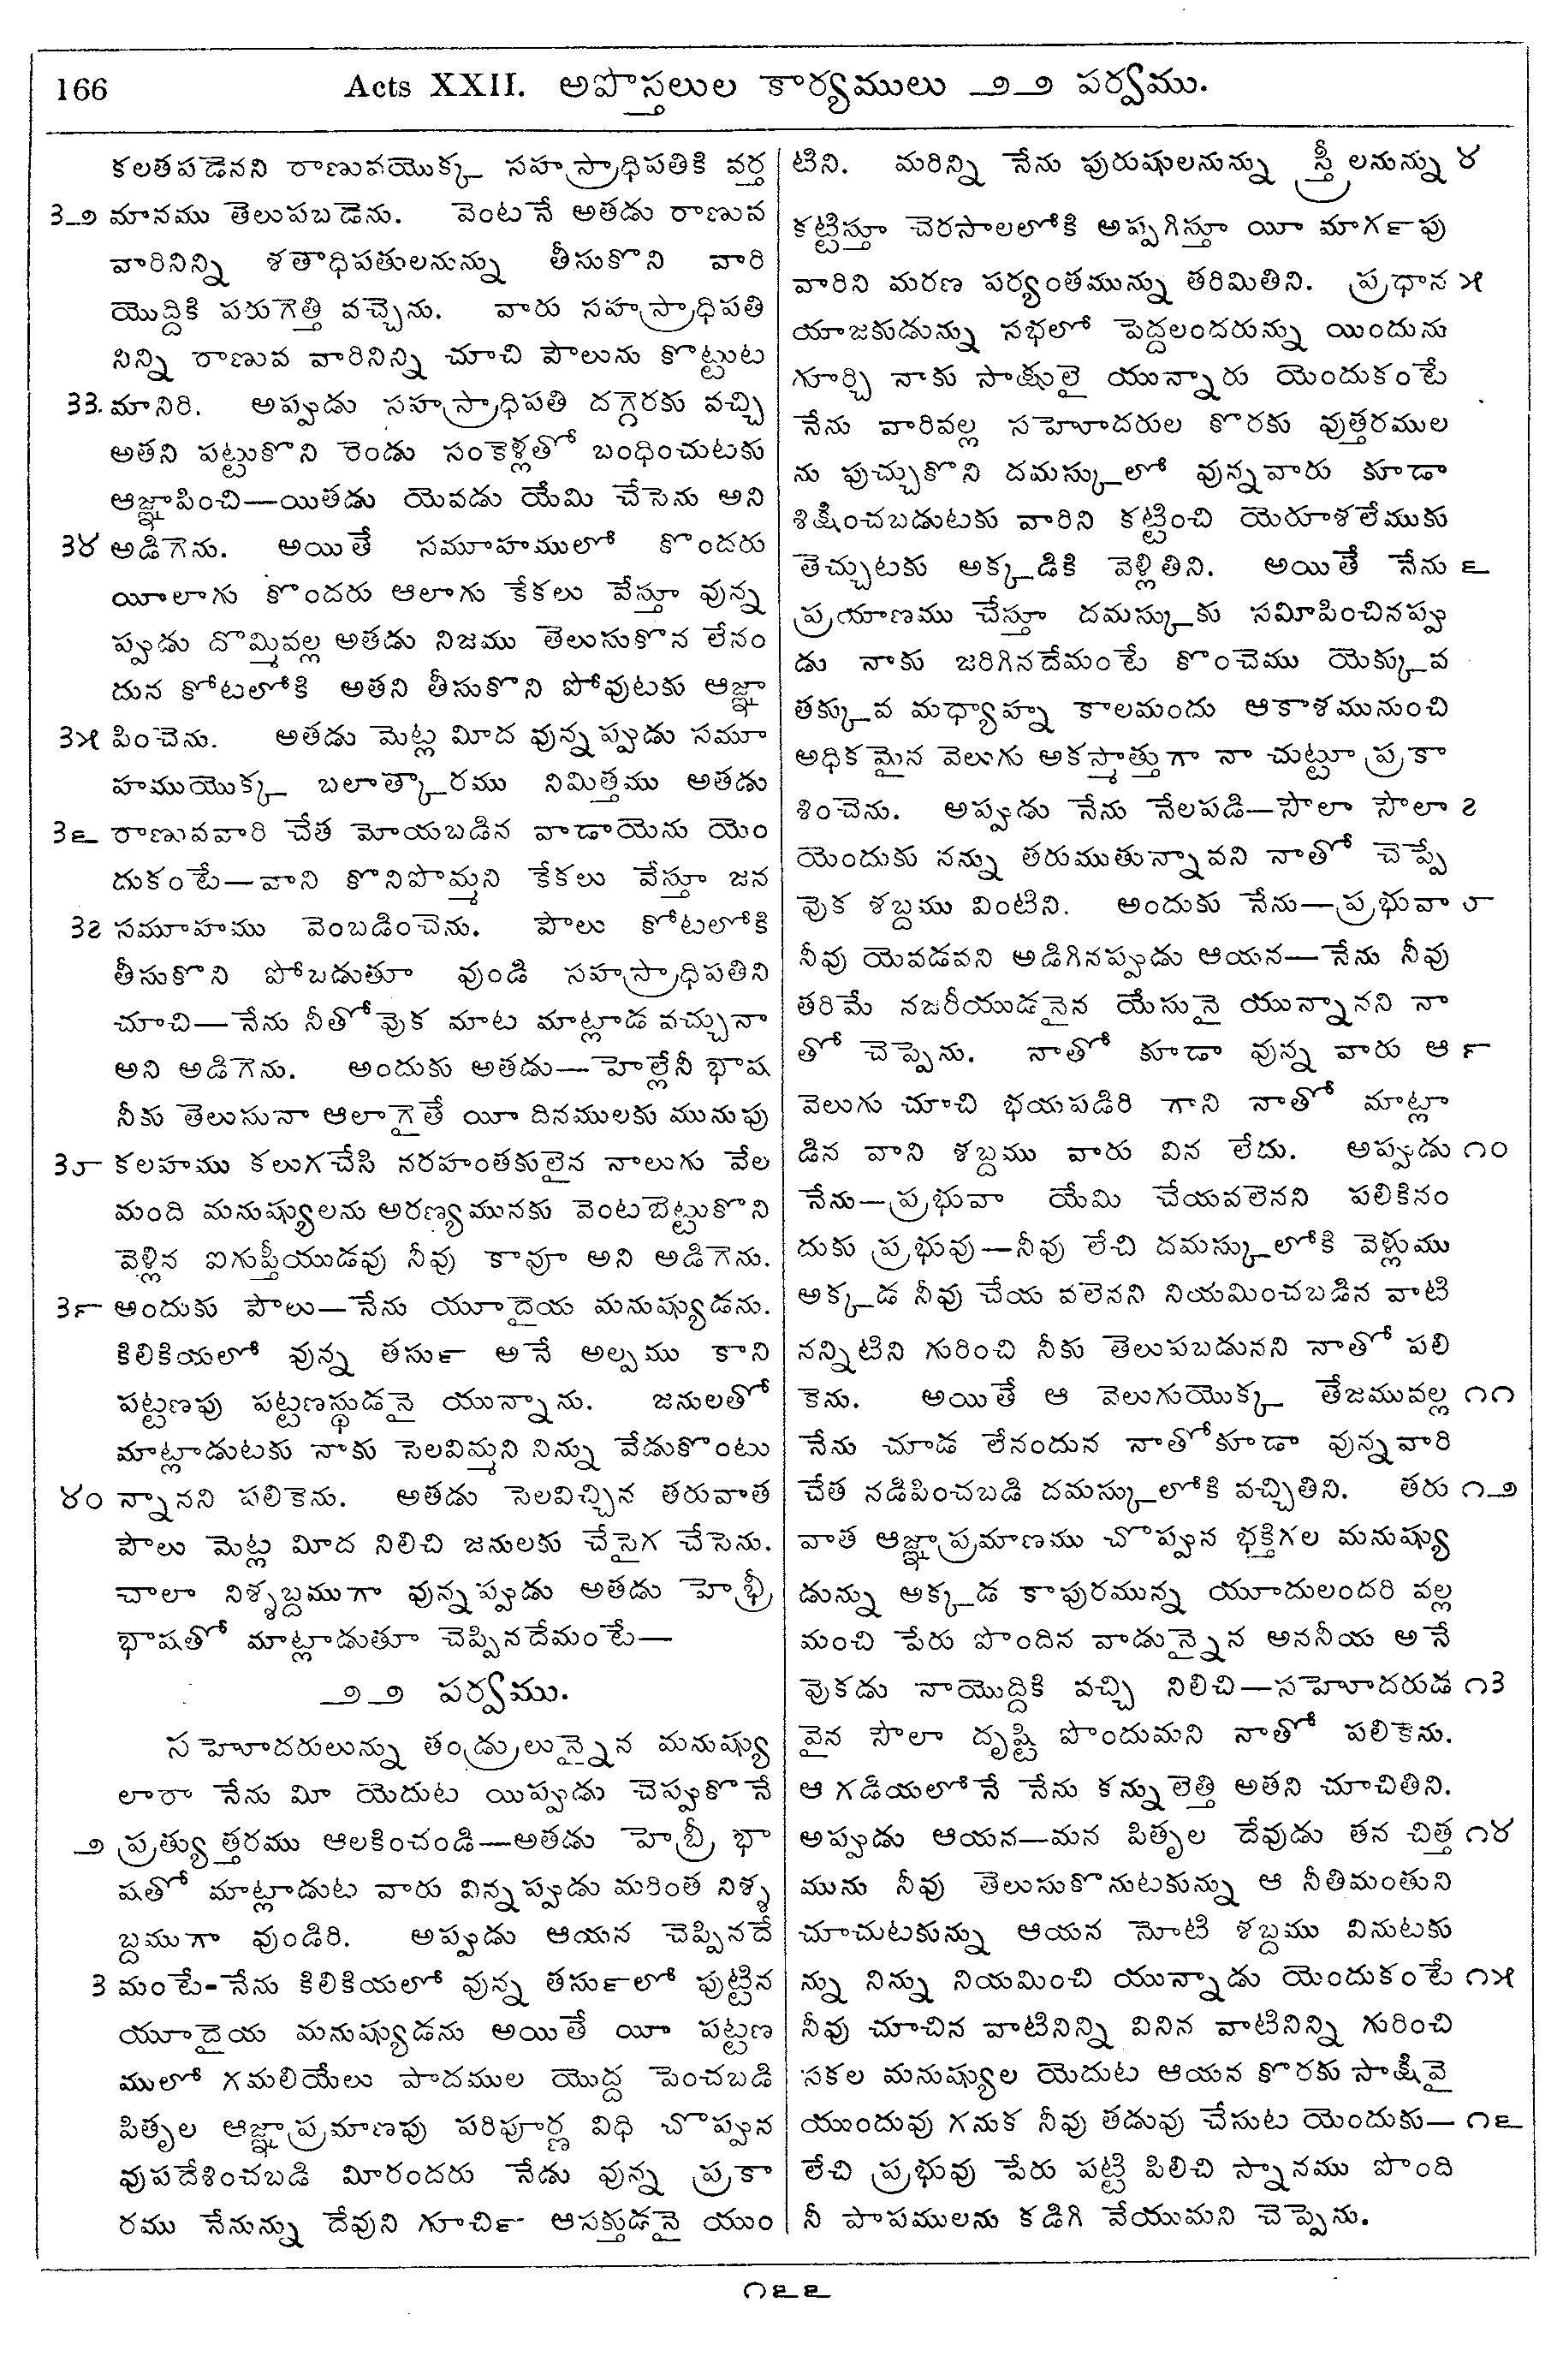 166
Acts XXII. అపొస్తలుల కార్యములు ౨౨ పర్వము.
కలతపడెనని రాణువయొక్క సహస్రాధిపతికి వర్త
౩౨ మానము తెలుపబడెను. వెంటనే అతడు రాణువ
వారినిన్ని శతాధిపతులనున్ను తీసుకొని వారి
యొద్దికి పరుగెత్తి వచ్చెను. వారు సహస్రాధిపతి
నిన్ని రాణువ వారినిన్ని చూచి పౌలును కొట్టుట
౩౩. మానిరి. అప్పుడు సహస్రాధిపతి దగ్గెరకు వచ్చి
అతని పట్టుకొని రెండు సంకెళ్లతో బంధించుటకు
ఆజ్ఞాపించి—యితడు యెవడు యేమి చేసెను అని
౩౪ అడిగెను. అయితే సమూహములో కొందరు
యీలాగు కొందరు ఆలాగు కేకలు వేస్తూ వున్న
ప్పుడు దొమ్మివల్ల అతడు నిజము తెలుసుకొన లేనం
దున కోటలోకి అతని తీసుకొని పోవుటకు ఆజ్ఞా
౩౫ పించెను. అతడు మెట్ల మీద వున్నప్పుడు సమూ
హముయొక్క బలాత్కారము నిమిత్తము అతడు
౩౬ రాణువవారి చేత మోయబడిన వాడాయెను యెం
దుకంటే—వాని కొనిపొమ్మని కేకలు వేస్తూ జన
౩౭ సమూహము వెంబడించెను. పౌలు కోటలోకి
తీసుకొని పోబడుతూ వుండి సహస్రాధిపతిని
చూచి—నేను నీతో వ్రెక మాట మాట్లాడ వచ్చునా
అని అడిగెను. అందుకు అతడు—హెల్లేనీ భాష
నీకు తెలుసునా ఆలాగైతే యీ దినములకు మునుపు
౩౮ కలహము కలుగచేసి నరహంతకులైన నాలుగు వేల
మంది మనుష్యులను అరణ్యమునకు వెంటబెట్టుకొని
వెళ్లిన ఐగుప్తీయుడవు నీవు కావూ అని అడిగెను.
౩౯ అందుకు పౌలు—నేను యూదైయ మనుష్యుడను.
కిలికియలో వున్న తసుర్‍ అనే అల్పము కాని
పట్టణపు పట్టణస్థుడనై యున్నాను. జనులతో
మాట్లాడుటకు నాకు సెలవిమ్మని నిన్ను వేడుకొంటు
౪౦ న్నానని పలికెను. అతడు సెలవిచ్చిన తరువాత
పౌలు మెట్ల మీద నిలిచి జనులకు చేసైగ చేసెను.
చాలా నిశ్శబ్దముగా వున్నప్పుడు అతడు హెభ్రీ
భాషతో మాట్లాడుతూ చెప్పినదేమంటే—
౨౨ పర్వము.
సహెూదరులున్ను తండ్రులున్నైన మనుష్యు
లారా నేను మీ యెదుట యిప్పుడు చెప్పుకొనే
౨ ప్రత్యుత్తరము ఆలకించండి—అతడు హెబ్రీ భా
షతో మాట్లాడుట వారు విన్నప్పుడు మరింత నిశ్శ
బ్దముగా వుండిరి. అప్పుడు ఆయన చెప్పినదే
౩ మంటే-నేను కిలికియలో వున్న తసుర్‍లో పుట్టిన
యూదైయ మనుష్యుడను అయితే యీ పట్టణ
ములో గమలియేలు పాదముల యొద్ద పెంచబడి
పితృల ఆజ్ఞాప్రమాణపు పరిపూర్ణ విధి చొప్పున
వుపదేశించబడి మీరందరు నేడు వున్న ప్రకా
రము నేనున్ను దేవుని గూచిర్‍ ఆసక్తుడనై యుం
టిని. మరిన్ని నేను పురుషులనున్ను స్త్రీలనున్ను ౪
కట్టిస్తూ చెరసాలలోకి అప్పగిస్తూ యీ మాగర్‍పు
వారిని మరణ పర్యంతమున్ను తరిమితిని. ప్రధాన ౫
యాజకుడున్ను సభలో పెద్దలందరున్ను యిందును
గూర్చి నాకు సాక్షులై యున్నారు యెందుకంటే
నేను వారివల్ల సహెూదరుల కొరకు వుత్తరముల
ను పుచ్చుకొని దమస్కులో వున్నవారు కూడా
శిక్షించబడుటకు వారిని కట్టించి యెరూశలేముకు
తెచ్చుటకు అక్కడికి వెళ్లితిని. అయితే నేను ౬
ప్రయాణము చేస్తూ దమస్కుకు సమీపించినప్పు
డు నాకు జరిగినదేమంటే కొంచెము యెక్కువ
తక్కువ మధ్యాహ్న కాలమందు ఆకాశమునుంచి
అధికమైన వెలుగు అకస్మాత్తుగా నా చుట్టూ ప్రకా
శించెను. అప్పుడు నేను నేలపడి—సౌలా సౌలా ౭
యెందుకు నన్ను తరుముతున్నావని నాతో చెప్పే
వ్రెక శబ్దము వింటిని. అందుకు నేను—ప్రభువా ౮
నీవు యెవడవని అడిగినప్పుడు ఆయన—నేను నీవు
తరిమే నజరీయుడనైన యేసునై యున్నానని నా
తో చెప్పెను. నాతో కూడా వున్న వారు ఆ ౯
వెలుగు చూచి భయపడిరి గాని నాతో మాట్లా
డిన వాని శబ్దము వారు విన లేదు. అప్పుడు ౧౦
నేను—ప్రభువా యేమి చేయవలెనని పలికినం
దుకు ప్రభువు—నీవు లేచి దమస్కులోకి వెళ్లుము
అక్కడ నీవు చేయ వలెనని నియమించబడిన వాటి
నన్నిటిని గురించి నీకు తెలుపబడునని నాతో పలి
కెను. అయితే ఆ వెలుగుయొక్క తేజమువల్ల ౧౧
నేను చూడ లేనందున నాతోకూడా వున్నవారి
చేత నడిపించబడి దమస్కులోకి వచ్చితిని. తరు ౧౨
వాత ఆజ్ఞాప్రమాణము చొప్పున భక్తిగల మనుష్యు
డున్ను అక్కడ కాపురమున్న యూదులందరి వల్ల
మంచి పేరు పొందిన వాడున్నైన అననీయ అనే
వ్రెకడు నాయొద్దికి వచ్చి నిలిచి—సహెూదరుడ ౧౩
వైన సౌలా దృష్టి పొందుమని నాతో పలికెను.
ఆ గడియలోనే నేను కన్నులెత్తి అతని చూచితిని.
అప్పుడు ఆయన—మన పితృల దేవుడు తన చిత్త ౧౪
మును నీవు తెలుసుకొనుటకున్ను ఆ నీతిమంతుని
చూచుటకున్ను ఆయన నోటి శబ్దము వినుటకు
న్ను నిన్ను నియమించి యున్నాడు యెందుకంటే ౧౫
నీవు చూచిన వాటినిన్ని వినిన వాటినిన్ని గురించి
సకల మనుష్యుల యెదుట ఆయన కొరకు సాక్షివై
యుందువు గనుక నీవు తడువు చేసుట యెందుకు— ౧౬
లేచి ప్రభువు పేరు పట్టి పిలిచి స్నానము పొంది
నీ పాపములను కడిగి వేయుమని చెప్పెను.
౧౬౬